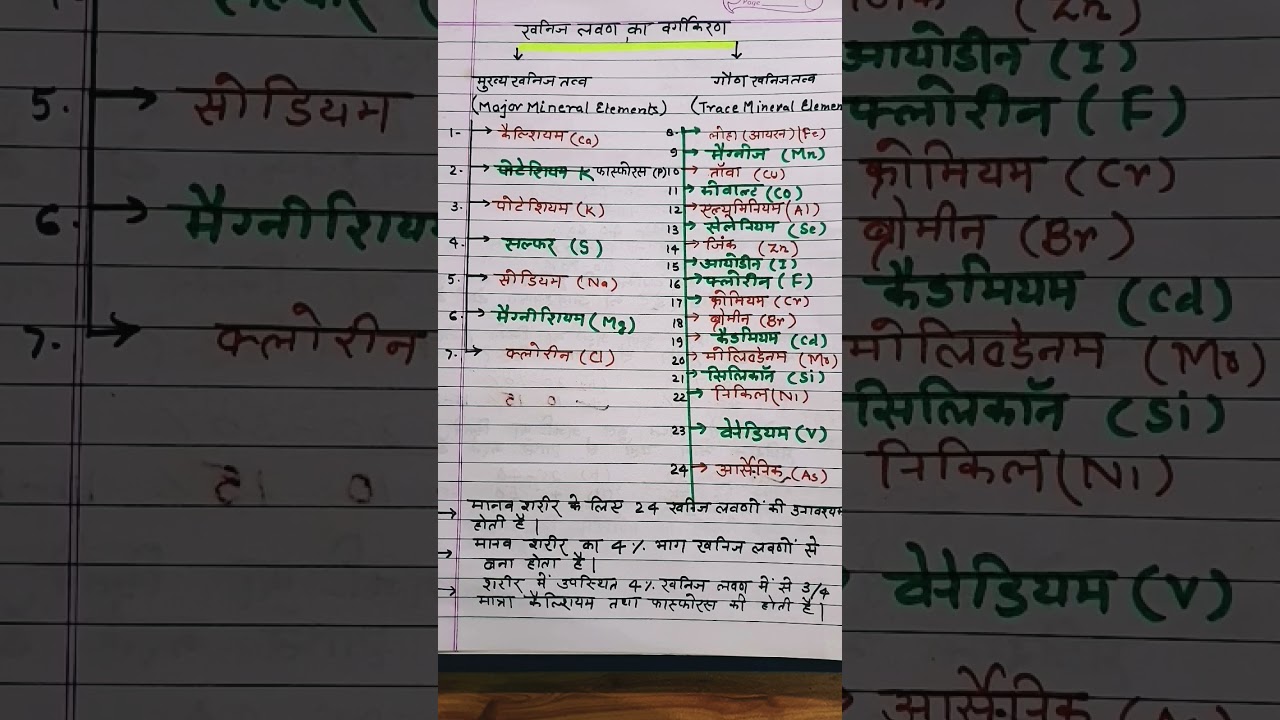 खनिज लवण का वर्गीकरण
मुख्य खनिज तत्व
(Major Mineral Elements)
1- कैल्शियम (Ca)
2- पोटेशियम K फास्फोरस (P)
3- पोटेशियम (K)
4- सल्फर (S)
5- सोडियम (Na)
6- मैग्नीशियम (Mg)
7- क्लोरीन (Cl)
गौण खनिज तत्व
(Trace Mineral Elemen
8 लोहा (आयरन) (Fe)
9 मैग्नीज (Mn)
10 ताँवा (Cu)
11 कोबाल्ट (Co)
12 एल्यूमिनियम (Al)
13 सेलेनियम (Se)
14 जिंक (Zn)
15 आयोडीन (I)
16 फ्लोरीन (F)
17 क्रोमियम (Cr)
18 ब्रोमीन (Br)
19 कैडमियम (Cd)
20 मोलिबडेनम (Mo)
21 सिलिकॉन (Si)
22 निकिल (Ni)
23 वेनेडियम (V)
24 आर्सेनिक (As)
मानव शरीर के लिए 24 खनिज लवणों की आवश्यक
होती है।
मानव शरीर का 4% भाग खनिज लवणों से
बना होता है।
शरीर में उपस्थित 4% खनिज लवण में से 3/4
मात्रा कैल्शियम तथा फास्फोरस की होती है।
5. सोडियम
6. मैग्नीशिय
7. क्लोरीन
आयोडीन (I)
फ्लोरीन (F)
क्रोमियम (Cr)
ब्रोमीन (Br)
कैडमियम (Cd)
मोलिबडेनम (Mo)
सिलिकॉन (Si)
निकिल (Ni)
वेनेडियम (V)
आर्सेनिक